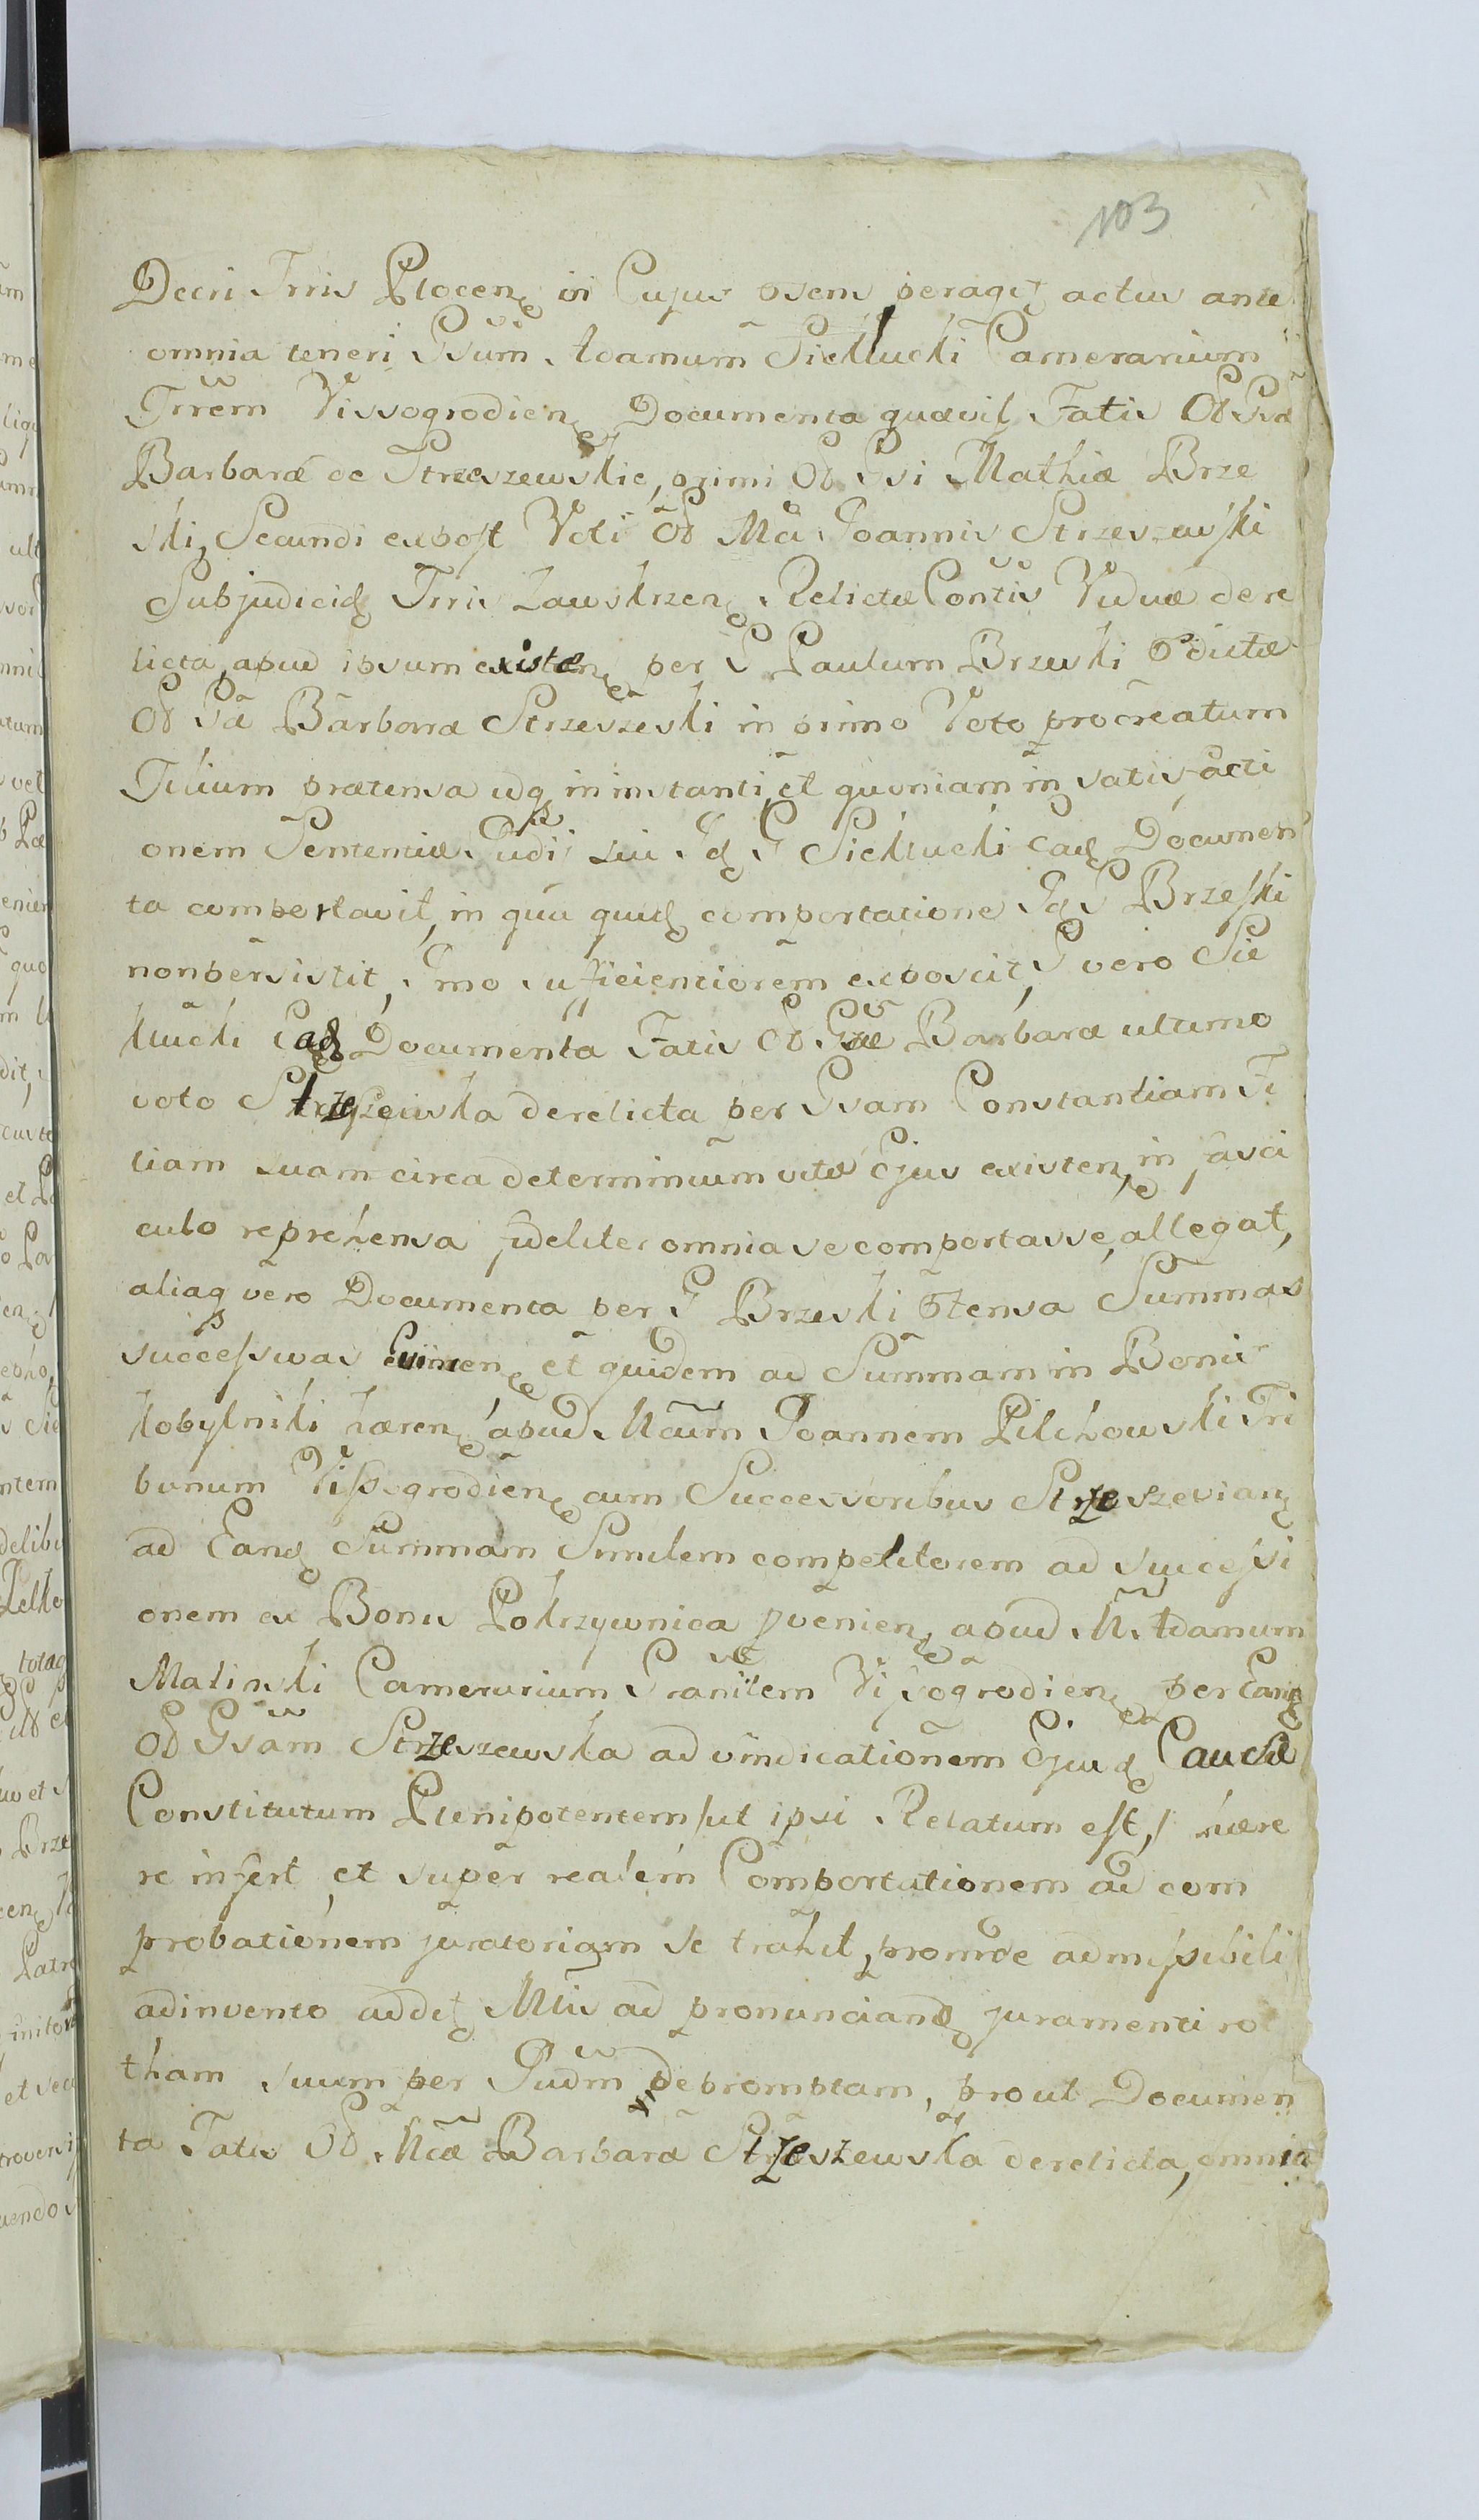 103
Decri Trris Plocen in Cujus psens peragit actus ante
omnia teneri Gsum Adamum Siekłucki Camerarium
Trrem Vissogrodien Documenta quævis Fatis Ol Gsæ
Barbaræ de Strzeszewskie, primi Ol Gsi Mathiæ Brze
ski, Secundi expost Voti Ol Mci Joannis Strzeszewski
Subjudicis Trris Zawskrzen Relictæ Contis Viduæ dere
licta, apud ipsum existen per G Paulum Brzeski pdictæ
Ol Gsæ Barbaræ Strzeszeski in primo Voto procreatum
Filium prætensa idq in instanti, et quoniam in satisfacti
onem Sententiæ Judii sui Id G Siekłucki Ead Documen
ta comportavit, in qua quid comportatione Id G Brzeski
non persistit, Imo sufficientiorem exposcit, G vero Sie
kłucki Ead Documenta Fatis Ol Gsæ Barbaræ ultimo
voto Strzeszewska derelicta per Gsam Constantiam Fi
liam suam circa determinium vitæ Ejus existen, in fasci
culo reprehensa fideliter omnia se comportasse, allegat,
aliaq vero Documenta per G Brzeski ptensa Summas
successivas Evincen et quidem ad Summam in Bonis
Kobylniki hæren apud Mcum Joannem Pilchowski Tri
bunum Vissogrodien cum Successoribus Strzeszevian
ad Eand Summam Similem competitorem ad successi
onem ex Bonis Pokrzywnica pvenien, apud M Adamum
Malinski Camerarium Granilem Vissogrodien per Eand
Ol Gsam Strzeszewska ad vindicationem Ejusd Causæ
Constitutum Plenipotentem /ut ipsi Relatum est,/ hære
re infert, et super realem Comportationem ad com
probationem juratoriam se trahit, proinde admissibili
adinvento addit Mtis ad pronunciand juramenti ro
tham suum per Judm depromptam, prout Documen
ta Fatis Ol Mcæ Barbaræ Strzeszewska derelicta, omnia